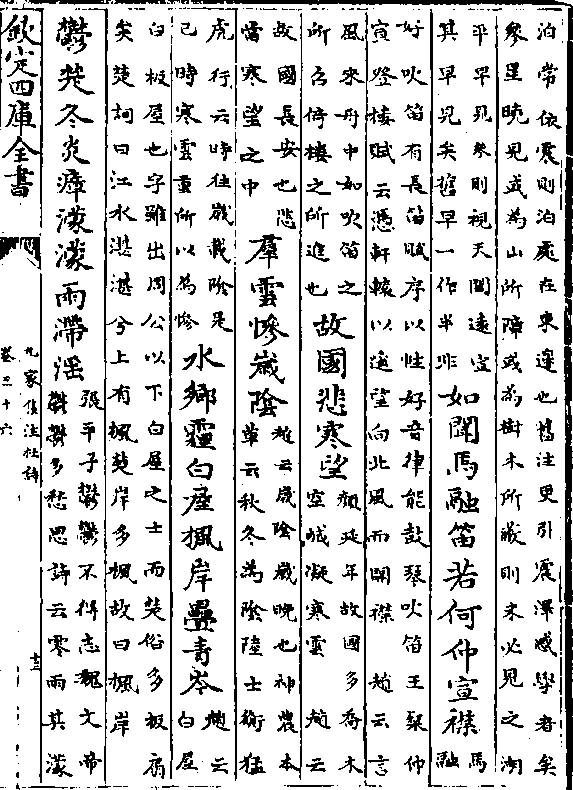 泊常依震則泊處在東邊也舊注更引震澤感學者矣
參星曉見或為山所障或為樹木所蔽則未必見之湖
平早見矣則視天闊遠宜
其早見矣舊早一作半非
如聞馬融笛若何仲宣襟
馬
融
好吹笛有長笛賦序以性好音律能鼓琴吹笛王粲仲
宣登樓賦云憑軒檻以遥望向北風而開襟趙云言
風來舟中如吹笛之
所名倚樓之所進也
故國悲寒望
顔延年故國多喬木
空城凝寒雲趙云
故國長安也悲
當寒望之中
羣雲慘歲隂
趙云歲隂歲晚也神農本
草云秋冬為隂陸士衡猛
虎行云時往歲載隂是
已時寒雲重所以為慘
水鄉霾白屋楓岸疊青岑
趙云
白屋
白板屋也字雖出周公以下白屋之士而楚俗多板屑
矣楚詞曰江水湛湛兮上有楓楚岸多楓故曰楓岸
鬱鬱冬炎瘴濛濛雨滯淫
張平子鬱鬱不得志魏文帝
鬱鬱多愁思詩云零雨其濛
欽定四庫全書
九家集注杜詩
卷三十六
十三